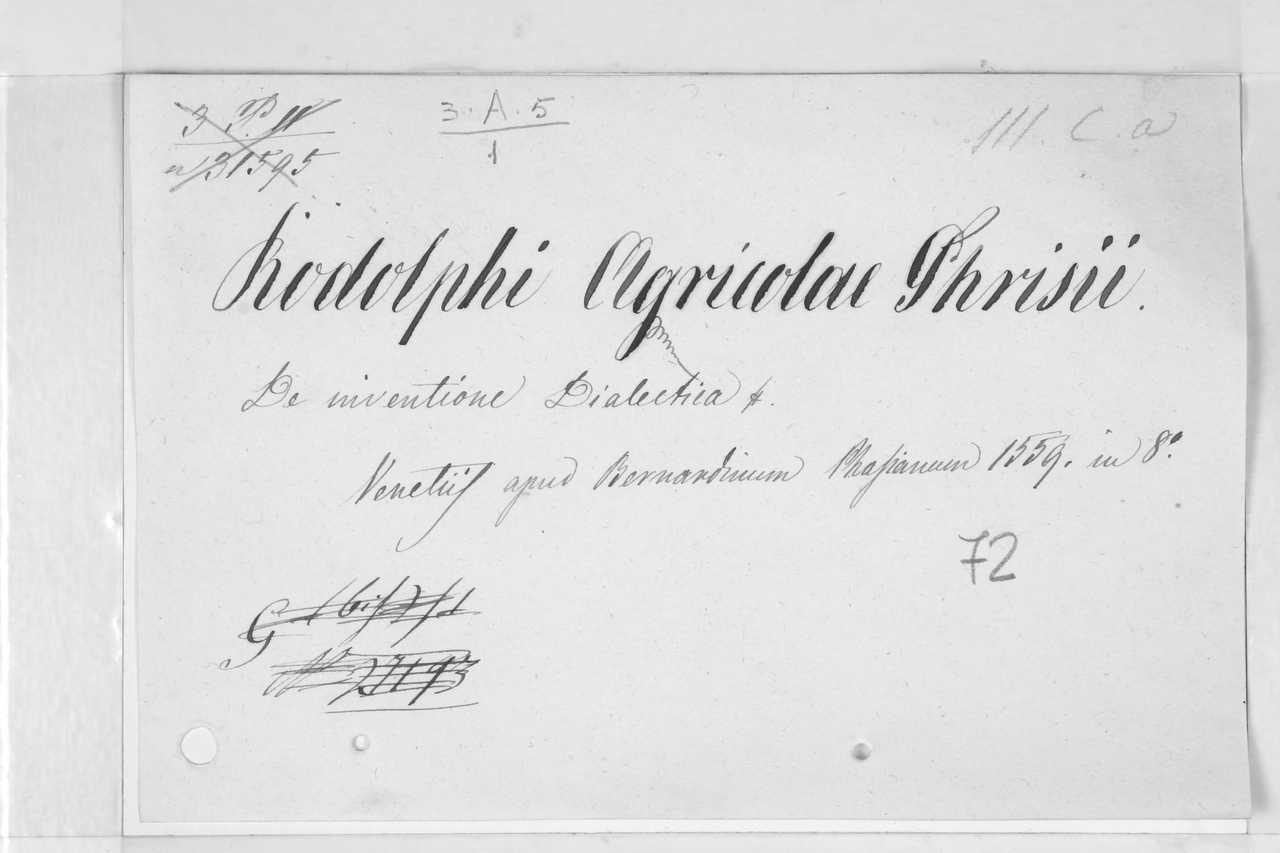 3. A. 5
1
III. C. a
Rodolphi Agricolae Phrisii.
De inventione Dialectica &.
Venetiis apud Bernardinum Phasianum 1559. in 8°.
72
G